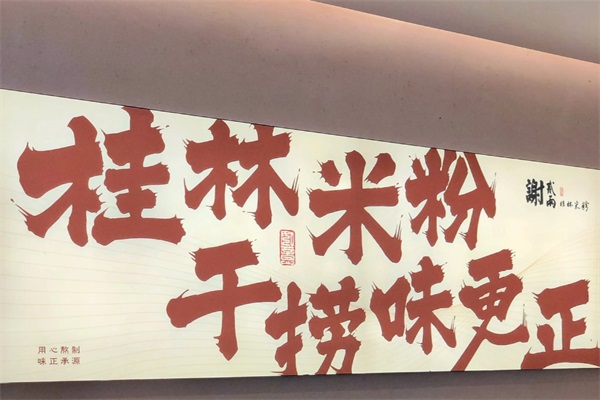 桂林米粉
干捞味更正
謝貳兩
桂林米粉
用心熬制
味正承源